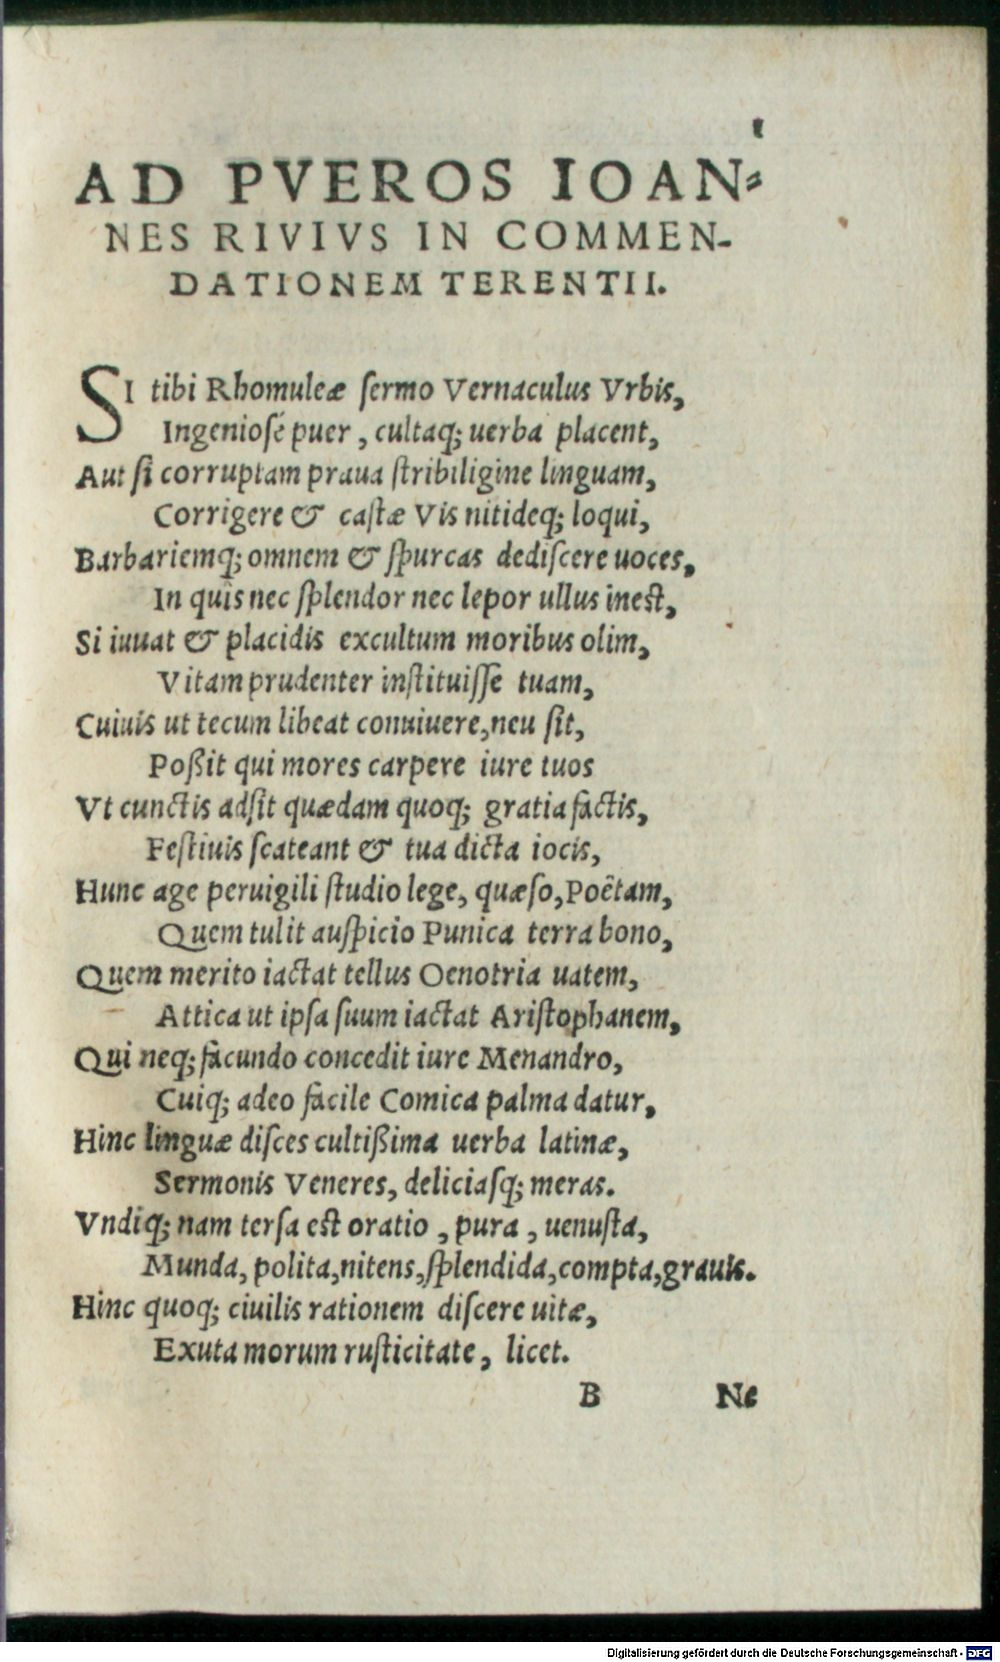 AD PVEROS IOAN-
NES RIVIVS IN COMMEN-
DATIONEM TERENTII.
SI tibi Rhomuleæ ſermo Vernaculus Vrbis,
Ingenioſé puer, cultaq; uerba placent,
Aut ſi corruptam praua ſtribiligine linguam,
Corrigere & caſtæ Vis nitideq; loqui,
Barbariemq; omnem & ſpurcas dediſcere uoces,
In quîs nec ſplendor nec lepor ullus ineſt,
Si iuuat & placidis excultum moribus olim,
Vitam prudenter inſtituiſſe tuam,
Cuiuis ut tecum libeat conuiuere, neu ſit,
Poßit qui mores carpere iure tuos
Vt cunctis adſit quædam quoq; gratia factis,
Feſtiuis ſcateant & tua dicta iocis,
Hunc age peruigili ſtudio lege, quæſo, Poëtam,
Quem tulit auſpicio Punica terra bono,
Quem merito iactat tellus Oenotria uatem,
Attica ut ipſa ſuum iactat Ariſtophanem,
Qui neq; facundo concedit iure Menandro,
Cuiq; adeo facile Comica palma datur,
Hinc linguæ diſces cultißima uerba latinæ,
Sermonis Veneres, deliciaſq; meras.
Vndiq; nam terſa eſt oratio, pura, uenuſta,
Munda, polita, nitens, ſplendida, compta, grauis.
Hinc quoq; ciuilis rationem diſcere uitæ,
Exuta morum ruſticitate, licet.
B Ne
Digitalisierung gefördert durch die Deutsche Forschungsgemeinschaft - DFG